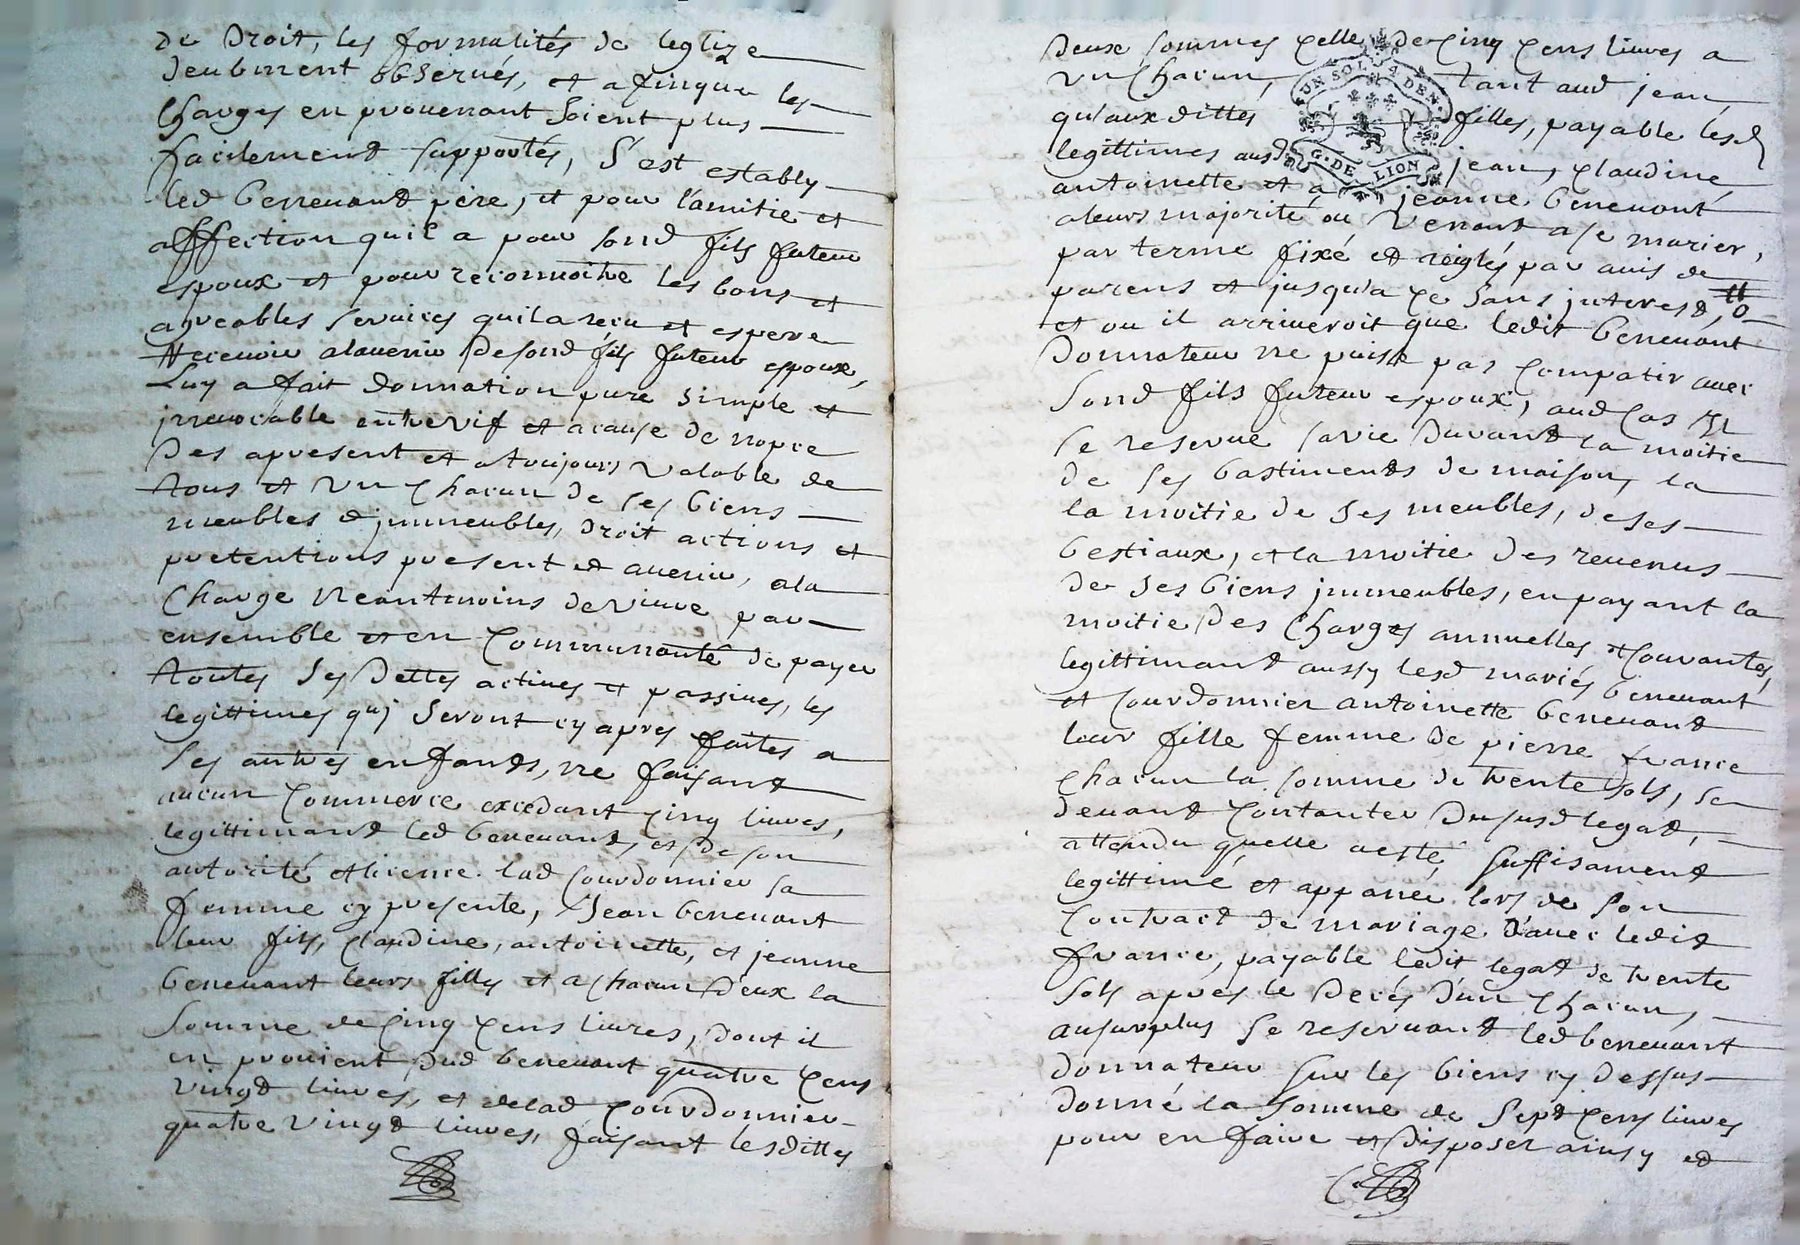 de Droit, les formalités de leglize
deubment observés, et afinque les
Charges en prouenant soient plus
facilement supportés, S'est estably
led beneuant père, et pour l'amitie et
affection quil a pour sond fils futeur
espoux et pour reconnoitre les bons et
agreables seruices quil a reçu et espere
receuoir alauenir desond fils futeur espoux,
Luy a fait donnation pure simple et
irreuocable entrevif et acause de nopce
Des apresent et atoujours valable de
tous et vn chacun de ses biens
meubles et jmmeubles, droit actions et
pretentions present et auenir, ala
Charge neantmoins deviure par
ensemble et en Communauté de payer
toutes ses Dettes actiues et passiues, les
legittimes quj seront cy apres faites a
ses autres enfants, ne faisant
aucun Commerce excedant cinq liures,
legittimant led beneuant, et de son
autorité et licence lad Courdonnier sa
femme cy presente, Jean beneuant
leur fils, claudine, antoinette, et jeanne
beneuant leurs filles et a chacun d'eux la
somme de cinq cens liures, dont il
en prouient dud beneuant quatre cens
vingt liures, et delad Courdonnier
quatre vingt liures, faisant lesdittes
deux sommes celle de cinq cens liures a
vn chacun, tant aud jean,
qu'aux dittes filles, payable lesd
legittimes ausd jean, claudine,
antoinette et a jeanne beneuant
aleurs majorité ou venant ase marier,
par terme fixé et reiglés par auis de
parens et jusqu'a ce sans jnterest,
et ou il arriueroit que ledit beneuant
Donnateur ne puisse pas compatir auec
sond fils futeur espoux, aud cas Jl
se reserue sa vie Durant la moitie
de ses bastiments de maison, la
la moitie de ses meubles, de ses
bestiaux, et la moitie des reuenus
de ses biens jmmeubles, en payant la
moitie des Charges annuelles et Courantes,
legittimant aussy lesd mariés beneuant
et Courdonnier antoinette beneuant
leur fille femme de pierre france
chacun la somme de trente sols, se
deuant contanter Dususd legat,
attendu quelle aesté suffisament
legittimé et appanée lors de son
Contract de mariage d'auec ledit
france, payable ledit legat de trente
sols apres le decés d'un Chacun,
ausurplus se reseruant led beneuant
donnateur sur les biens cy dessus
donné la somme de sept cens liures
pour en faire et disposer ainsy et
UN SOL 4 DEN.
G. DE LION